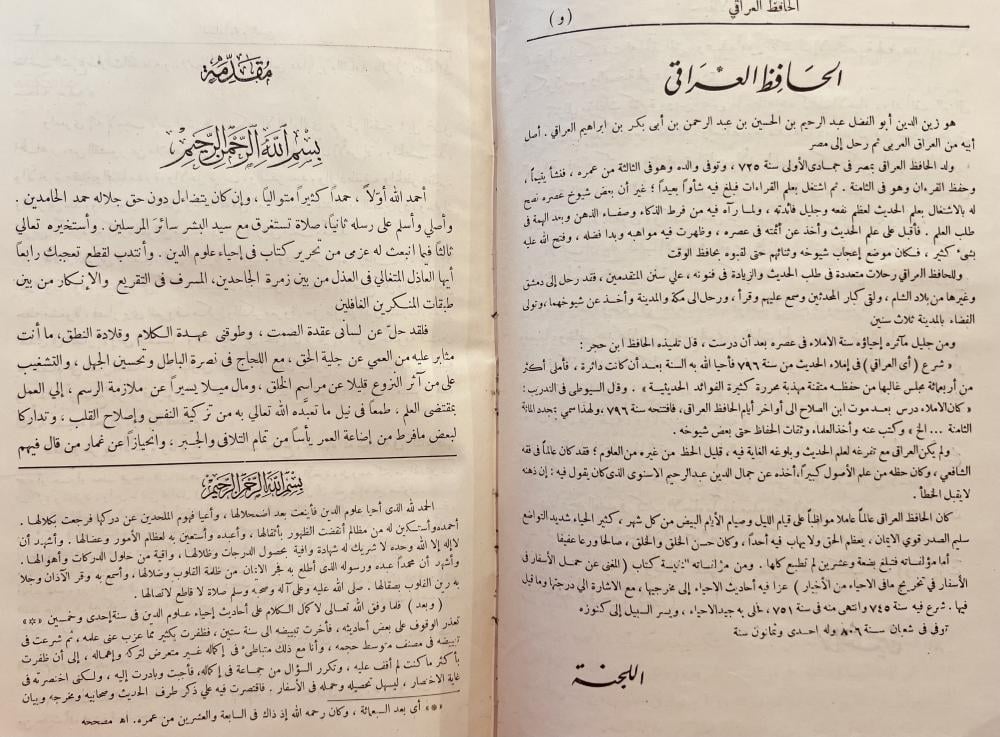 الحافظ العراقي
( و )
الحافظ العراقي
هو زين الدين أبو الفضل عبد الرحيم بن الحسين بن عبد الرحمن بن أبى بكر بن ابراهيم العراقي . أصل
أبيه من العراق العربى ثم رحل إلى مصر
ولد الحافظ العراقى بمصر فى جمادى الأولى سنة ٧٢٥ ، وتوفى والده وهو فى الثالثة من عمره ، فنشأ يتيماً ،
وحفظ القرءان وهو فى الثامنة . ثم اشتغل بعلم القراءات فبلغ فيه شأوا بعيداً ؛ غير أن بعض شيوخ عصره نصح
له بالاشتغال بعلم الحديث لعظم نفعه وجليل فائدته ، ولما رآه فيه من فرط الذكاء وصفاء الذهن وبعد الهمة فى
طلب العلم . فأقبل على علم الحديث وأخذ عن أئمته فى عصره ، وظهرت فيه مواهبه وبدا فضله ، وفتح الله عليه
بشىء كثير ، فكان موضع إعجاب شيوخه وثنائهم حتى لقبوه بحافظ الوقت
وللحافظ العراقي رحلات متعددة فى طلب الحديث والزيادة فى فنونه ، على سنن المتقدمين ، فقد رحل إلى دمشق
وغيرها من بلاد الشام ، ولقى كبار المحدثين وسمع عليهم وقرأ ، ورحل الى مكة والمدينة وأخذ عن شيوخهما ، وتولى
القضاء بالمدينة ثلاث سنين
ومن جليل مآثره إحياؤه سنة الاملاء فى عصره بعد أن درست ، قال تلميذه الحافظ ابن حجر :
« شرع ( أى العراقي ) فى إملاء الحديث من سنة ٧٩٦ فأحيا الله به السنة بعد أن كانت دائرة ، فأملى أكثر
من أربعمائة مجلس غالبها من حفظه متقنة مهذبة محررة كثيرة الفوائد الحديثية » . وقال السيوطى فى التدريب :
« كان الاملاء درس بعد موت ابن الصلاح الى أواخر أيام الحافظ العراقى ، فافتتحه سنة ٧٩٦ ، ولهذا سمي بمجدد المائة
الثامنة ... الخ » وكتب عنه وأخذ العلماء وثقات الحفاظ حتى بعض شيوخه .
ولم يكن العراقي مع تفرغه لعلم الحديث وبلوغه الغاية فيه ، قليل الحظ من غيره من العلوم ؛ فقد كان عالماً فى فقه
الشافعي ، وكان حظه من علم الأصول كبيراً ، أخذه عن جمال الدين عبد الرحيم الاسنوى الذى كان يقول فيه : إن ذهنه
لا يقبل الخطأ .
كان الحافظ العراقي عالماً عاملا مواظباً على قيام الليل وصيام الأيام البيض من كل شهر ، كثير الحياء شديد التواضع
سليم الصدر قوي الايمان ، يعظم الحق ولا يهاب فيه أحداً ، وكان حسن الخلق والخلق ، صالحا ورعا عفيفا
أما مؤلفاته فتبلغ بضعة وعشرين لم تطبع كلها . ومن مؤلفاته النفيسة كتاب ( المغنى عن حمل الأسفار فى
الأسفار فى تخريج مافى الاحياء من الأخبار ) عزا فيه أحاديث الاحياء إلى مخرجيها ، مع الاشارة الى درجتها وما قيل
فيها . شرع فيه سنة ٧٤٥ وانتهى منه فى سنة ٧٥١ ، على به جيد الاحياء ، ويسر السبيل إلى كنوزه
توفى فى شعبان سنة ٨٠٦ وله احدى وثمانون سنة
اللجنة
مقدمة
بسم الله الرحمن الرحيم
أحمد الله أوّلاً ، حمداً كثيراً متوالياً ، وإن كان يتضاءل دون حق جلاله حمد الحامدين .
وأصلي وأسلم على رسله ثانيا ، صلاة تستغرق مع سيد البشر سائر المرسلين . وأستخيره تعالي
ثالثا فيما انبعث له عزمى من تحرير كتاب فى إحياء علوم الدين . وأنتدب لقطع تعجبك رابعاً
أيها العاذل المتغالى في العذل من بين زمرة الجاحدين ، المسرف فى التقريع والإنكار من بين
طبقات المنكرين الغافلين
فلقد حلّ عن لسانى عقدة الصمت ، وطوقنى عهدة الكلام وقلادة النطق ، ما أنت
مثابر عليه من العمي عن جلية الحق ، مع اللجاج فى نصرة الباطل وتحسين الجهل ، والتشغيب
على من آثر النزوع قليلا عن مراسم الخلق ، ومال ميلا يسيراً عن ملازمة الرسم ، إلي العمل
بمقتضى العلم ، طمعاً فى نيل ما تعبده الله تعالي به من تزكية النفس وإصلاح القلب ، وتداركا
لبعض مافرط من إضاعة العمر يأساً من تمام التلافى والجبر ، وانحيازاً عن غمار من قال فيهم
بسم الله الرحمن الرحيم
الحمد لله الذى أحيا علوم الدين فأينعت بعد اضمحلالها ، وأعيا فهوم الملحدين عن دركها فرجعت بكلالها .
أحمده وأستكين له من مظالم أنقضت الظهور بأثقالها ، وأعبده وأستعين به لعظام الأمور وعضالها . وأشهد أن
لا إله إلا الله وحده لا شريك له شهادة وافية بحصول الدرجات وظلالها ، واقية من حلول الدركات وأهوالها .
وأشهد أن محمداً عبده ورسوله الذى أطلع به فجر الايمان من ظلمة القلوب وضلالها ، وأسمع به وقر الآذان وجلا
به رين القلوب بصقالها . صلى الله عليه وعلى آله وصحبه وسلم صلاة لا قاطع لاتصالها .
( وبعد ) فلما وفق الله تعالى لا كمال الكلام على أحاديث إحياء علوم الدين فى سنة إحدى وخمسين «*»
تعذر الوقوف على بعض أحاديثه ، فأخرت تبييضه الى سنة ستين ، فظفرت بكثير مما عزب عنى علمه ، ثم شرعت فى
تبييضه فى مصنف متوسط حجمه ، وأنا مع ذلك متباطىء فى إكماله غير متعرض لتركه وإهماله ، إلى أن ظفرت
بأكثر ما كنت لم أقف عليه ، وتكرر السؤال من جماعة فى إكماله ، فأجبت وبادرت إليه ، ولكنى اختصرته فى
غاية الاختصار ، ليسهل تحصيله وحمله فى الأسفار . فاقتصرت فيه علي ذكر طرف الحديث وصحابيه ومخرجه وبيان
«*» أى بعد السبعمائة ، وكان رحمه الله إذ ذاك فى السابعة والعشرين من عمره. اه مصححه